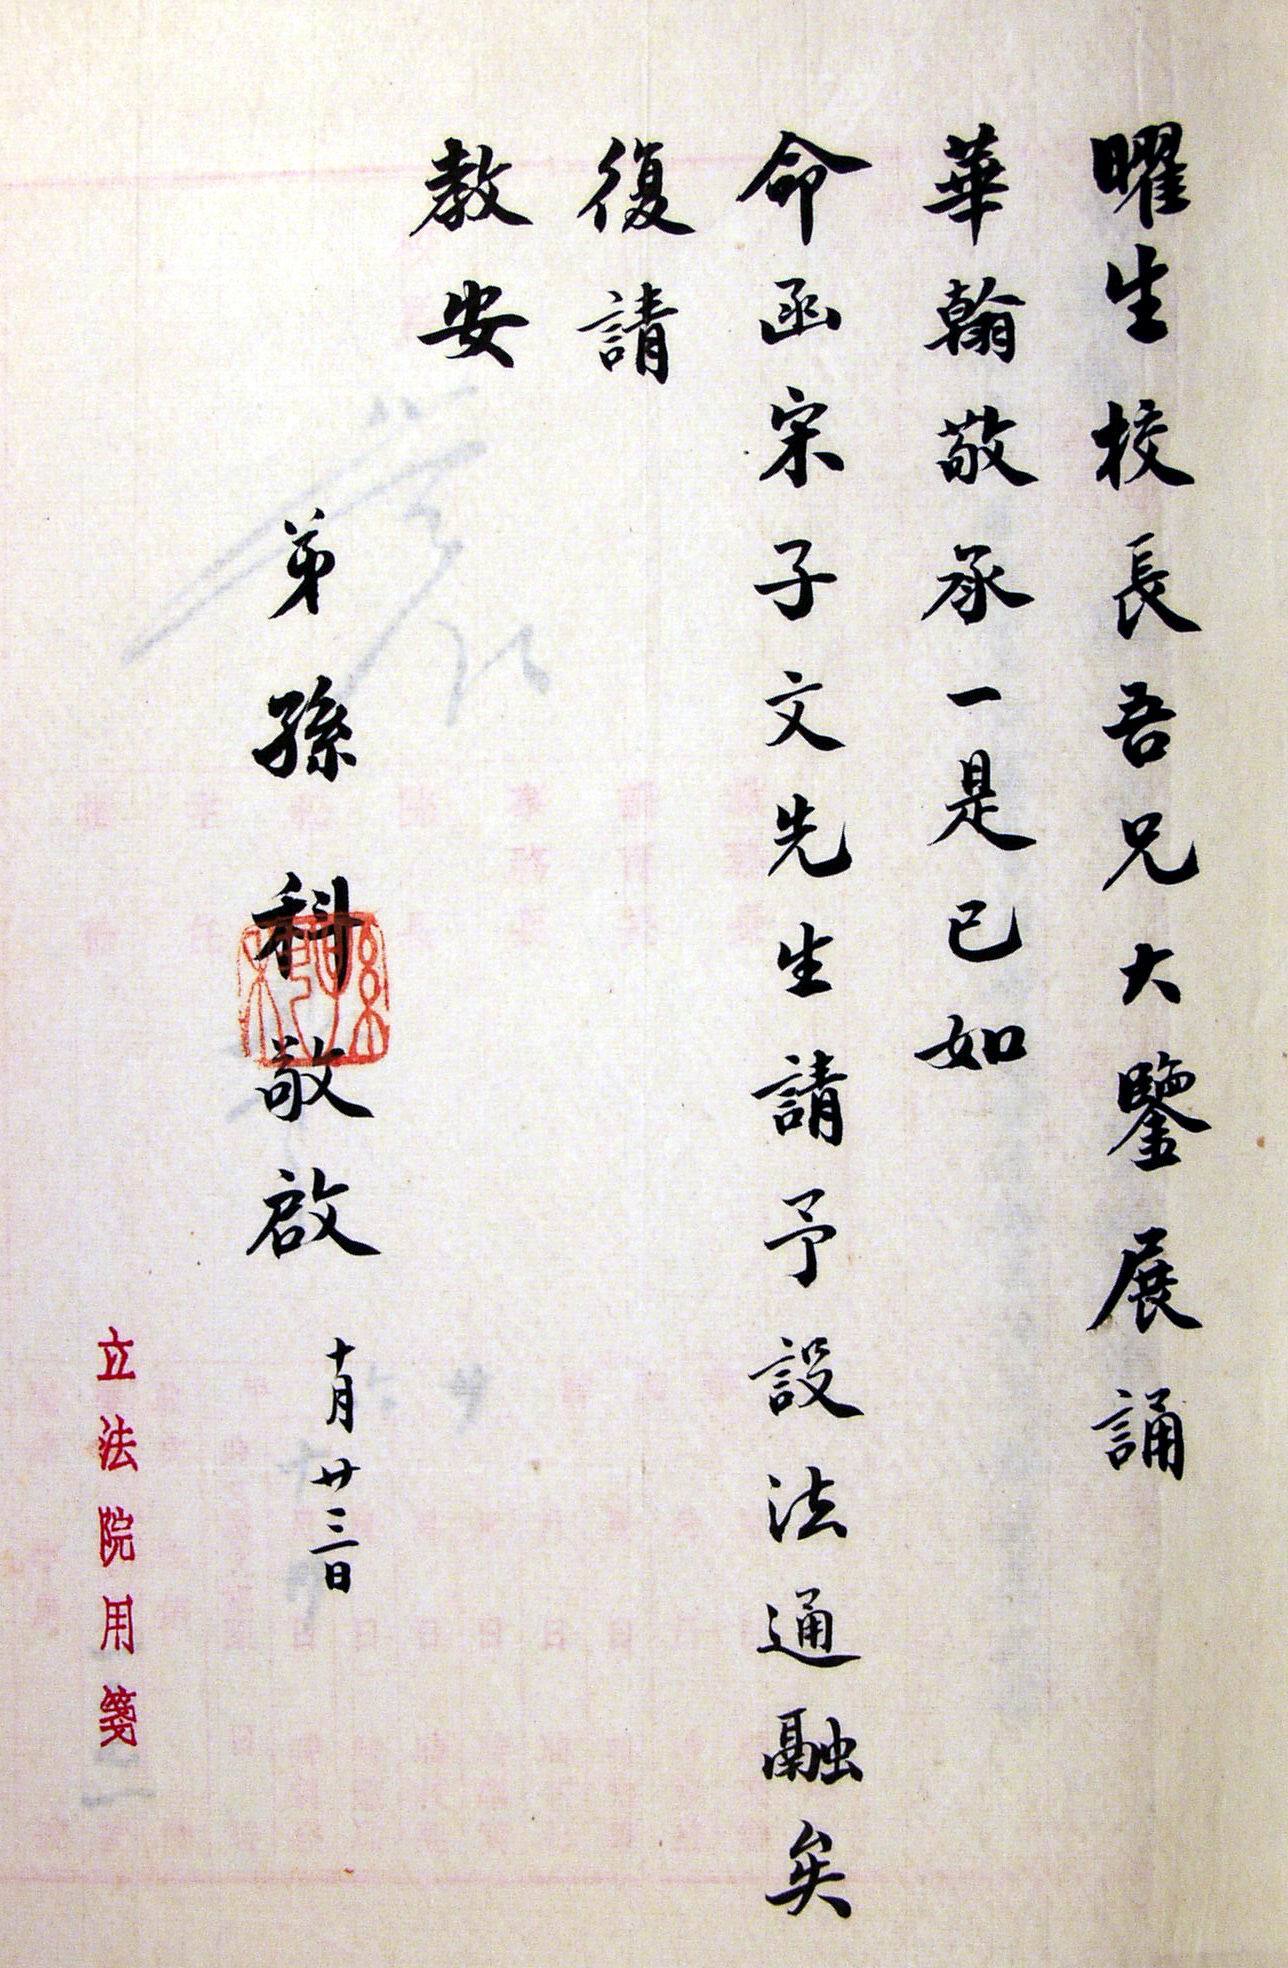 曜生校長吾兄大鑒展誦
華翰敬承一是已如
命函宋子文先生請予設法通融矣
復請
教安
弟孫科敬啟
十月廿三日
立法院用箋